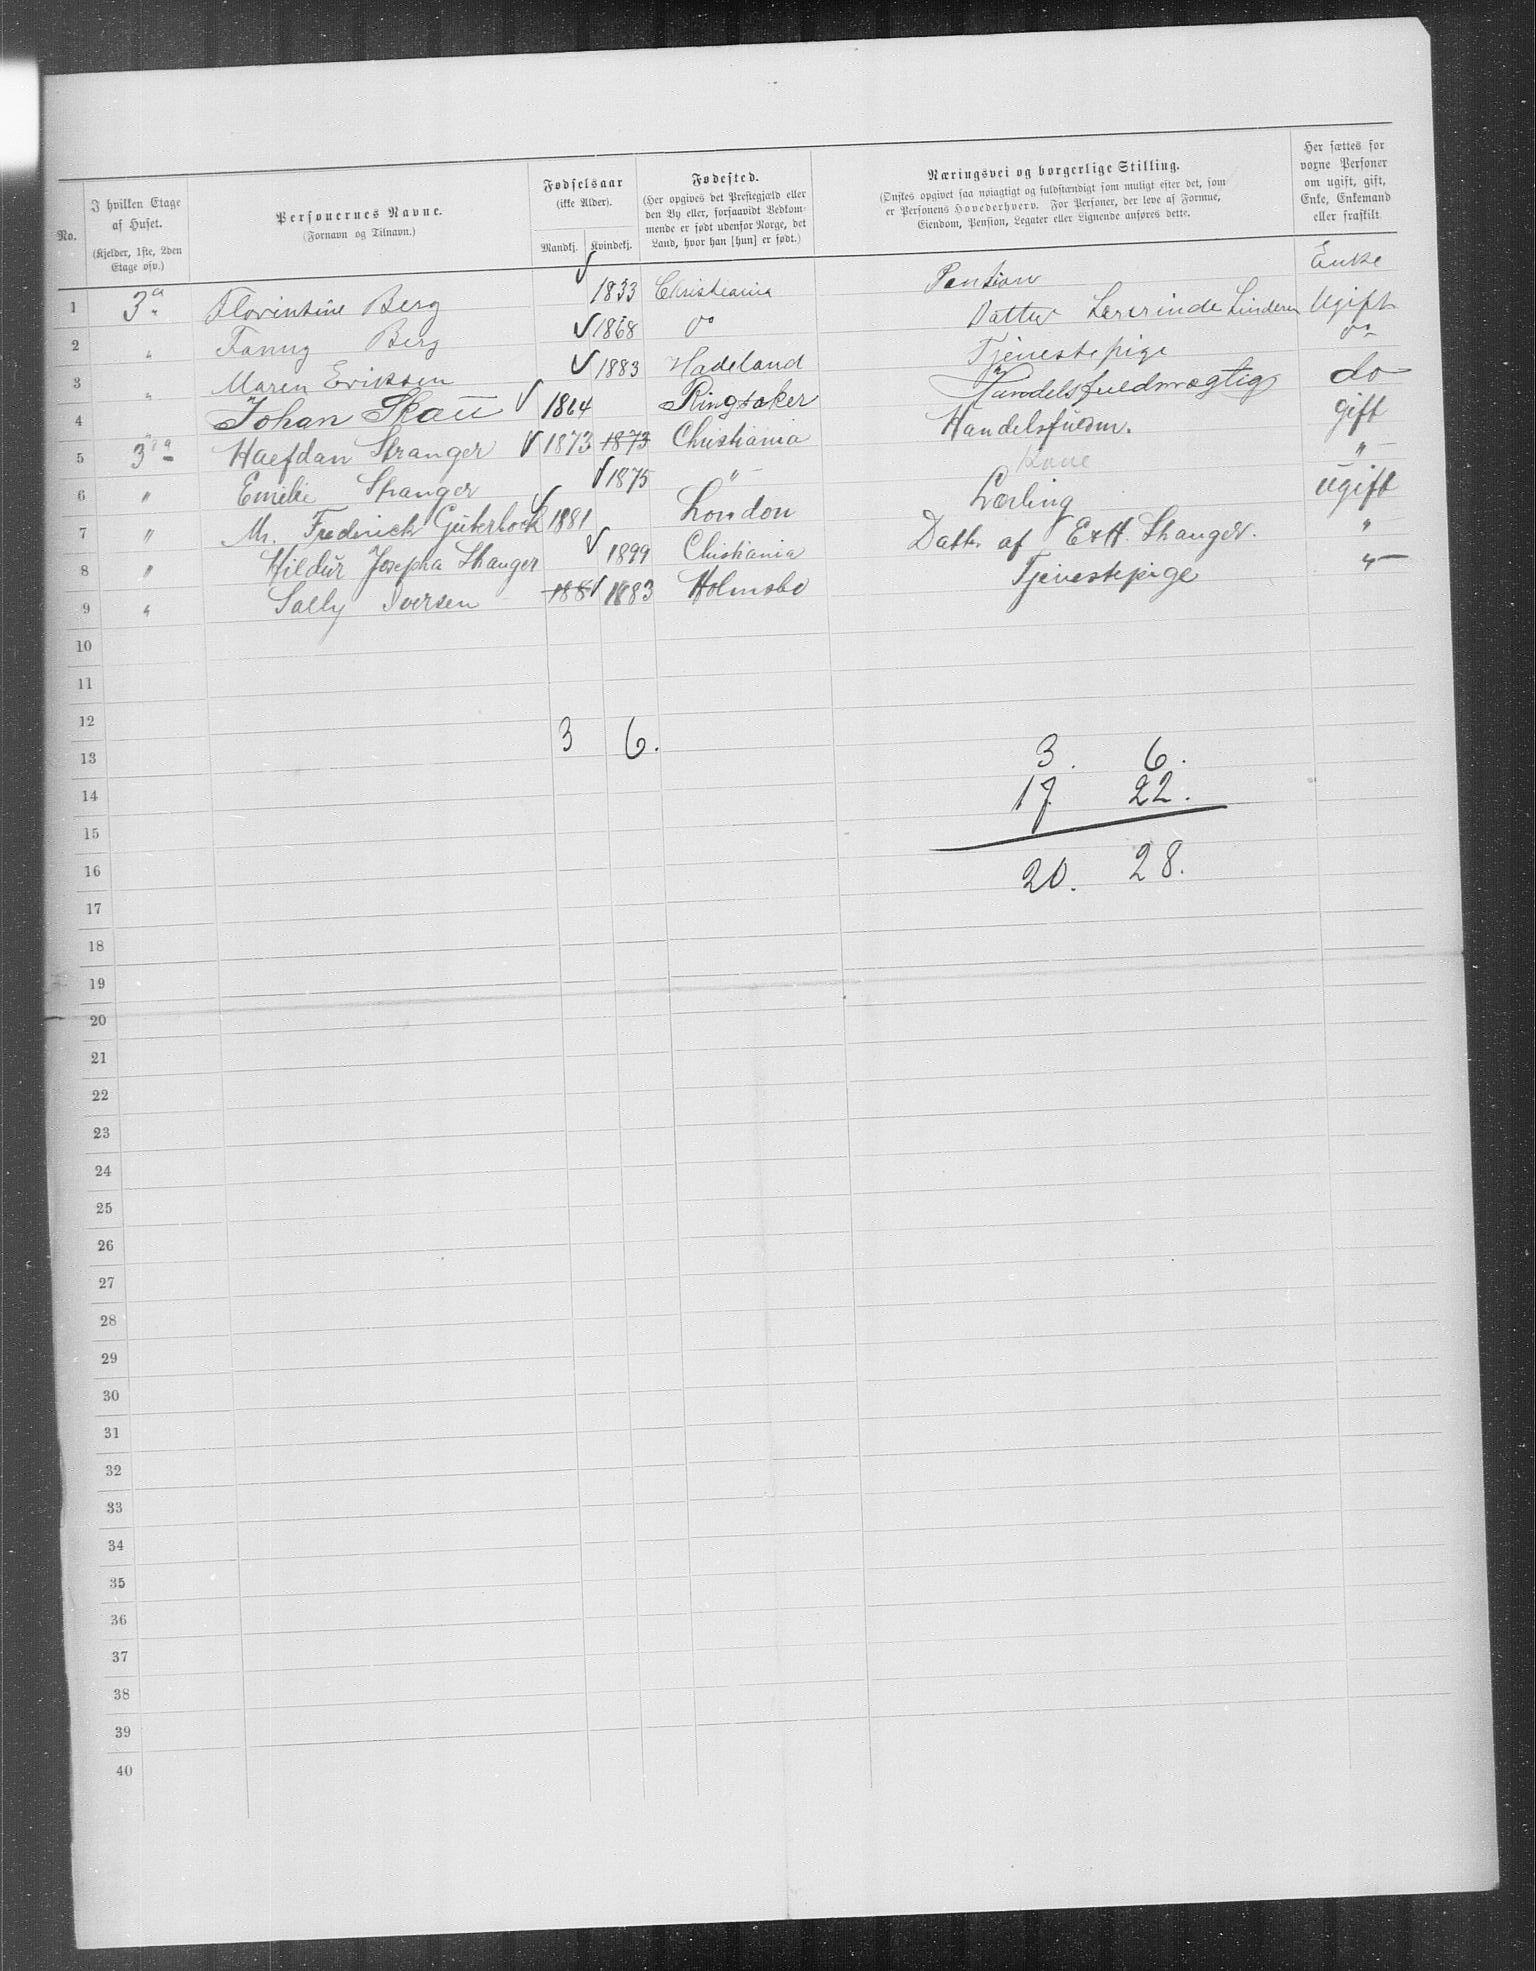 No. | I hvilken Etage af Huset. (Kjelder, 1ste, 2den Etage osv.) | Personernes Navne. (Fornavn og Tilnavn.) | Fødselsaar (ikke Alder). Mandkj. Kvindekj. | Fødested. (Her opgives det Prestegjæld eller den By eller, forsaavidt Vedkommende er født udenfor Norge, det Land, hvor han [hun] er født.) | Næringsvei og borgerlige Stilling. (Ønskes opgivet saa nøiagtigt og fuldstændigt som muligt efter det, som er Personens Hovederhverv. For Personer, der leve af Formue, Eiendom, Pension, Legater eller Lignende anføres dette. | Her sættes for voxne Personer om ugift, gift, Enke, Enkemand eller fraskilt
1 3 Florentine Berg √ 1833 Christiania Pension Enke
2 " Fanny Berg √ 1868 do Datter Lærerinde Ugift
3 " Maren Eriksen √ 1883 Hadeland Tjenestepige do
4 " Johan Skau √ 1864 Ringsaker Handelsfuldmægtig do
5 3 Halfdan Stranger √ 1873 1873 Christiania Handelsfuldm. gift
6 " Emilie Stranger √ 1875 " Kone "
7 " Mr. Frederick Güterbock √ 1881 London Lærling ugift
8 " Hildur Josepha Stranger √ 1899 Christiania Datter af E & H. Stranger. "
9 " Sally Iversen 188 √ 1883 Holmsbo Tjenestepige "
10
11
12
13 3 6. 3. 6.
14 17 22.
15
16 20. 28.
17
18
19
20
21
22
23
24
25
26
27
28
29
30
31
32
33
34
35
36
37
38
39
40